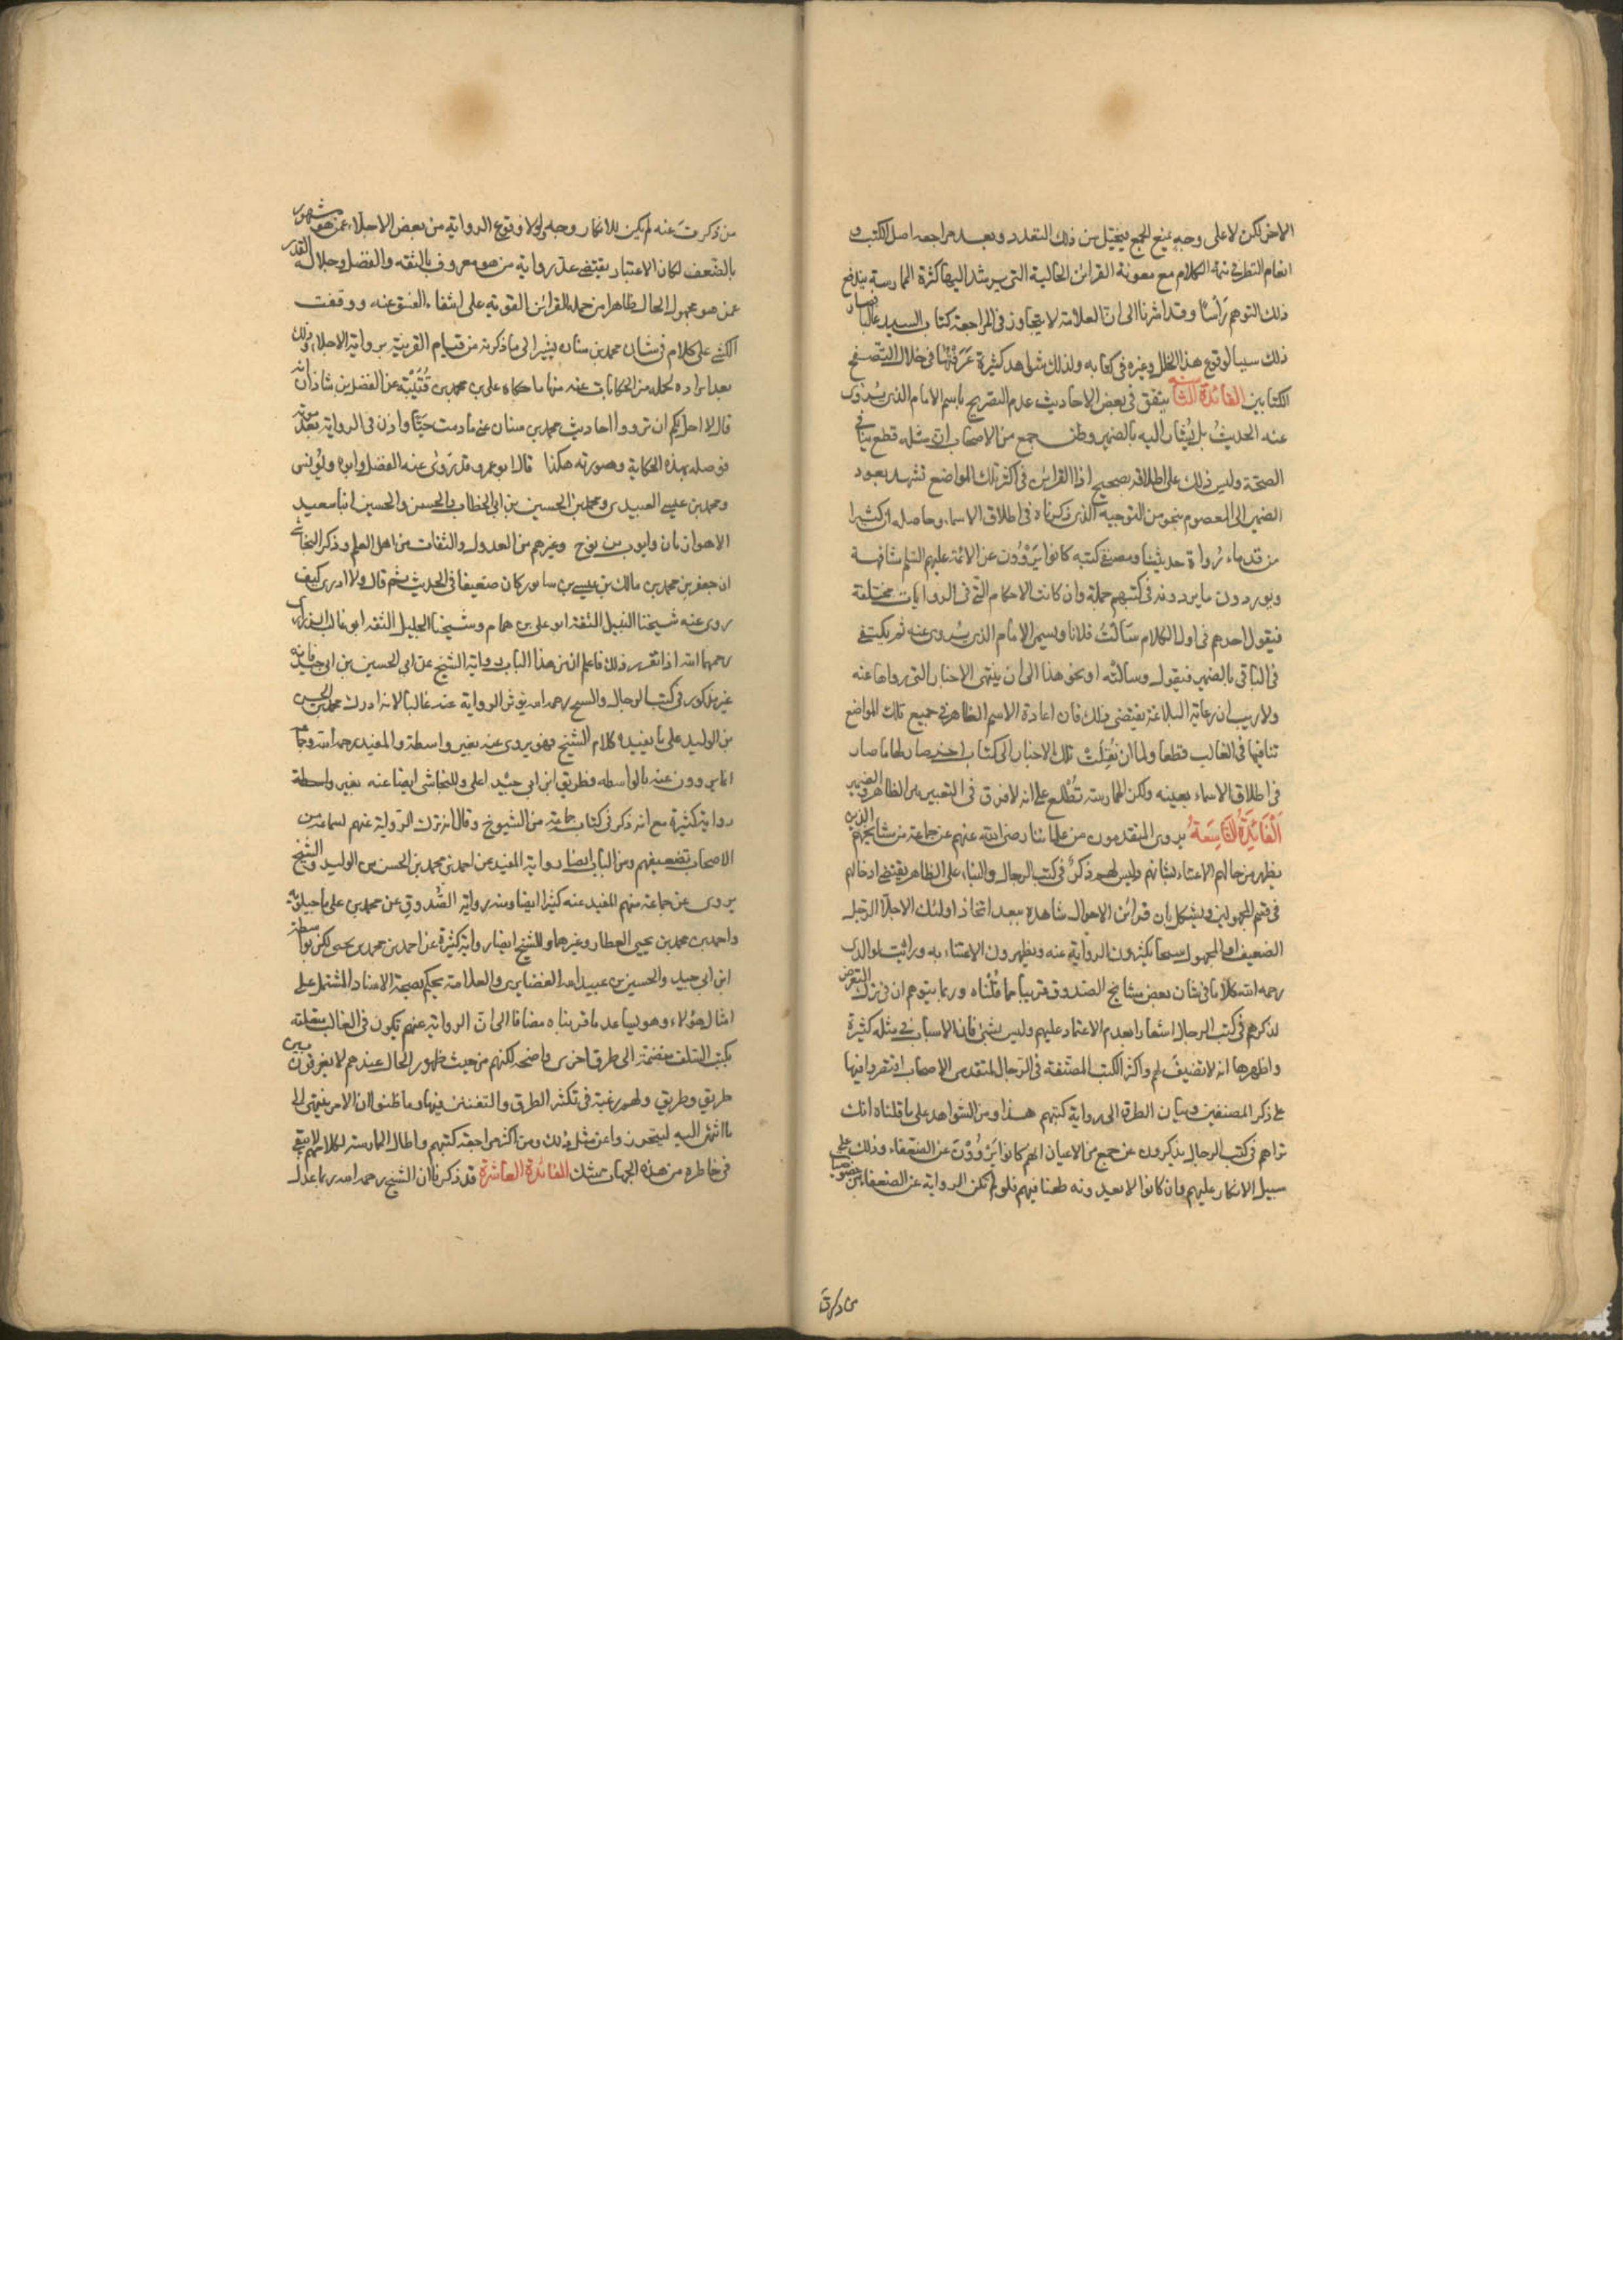 الاخر لكن لا على وجه يمنع الجمع فيتخيل من ذلك التعدد وبعد مراجعة اصل الكتب و
انعام النظر في تتمة الكلام مع معونة القرائن الحالية التي يرشد اليها كثرة الممارسة يندفع
ذلك التوهم رأسا وقد اشرنا الى ان العلامة لا يتجاوز في المراجعة كتاب السيد غالبا فصار
ذلك سببا لوقوع هذا الخلل وغيره في كتابه ولذلك شواهد كثيرة عرفتها في خلال التصفح
للكتابين الفائدة الثامنة يتفق في بعض الاحاديث عدم التصريح باسم الامام الذي يروى
عنه الحديث بل يشار اليه بالضمير وظن جمع من الاصحاب ان مثله قطع ينافي
الصحة وليس ذلك على اطلاقه بصحيح اذ القرائن في اكثر تلك المواضع تشهد بعود
الضمير الى المعصوم بنحو من التوجيه الذي ذكرناه في اطلاق الاسماء وحاصله ان كثيرا
من قدماء رواة حديثنا ومصنفي كتبه كانوا يروون عن الائمة عليهم السلم مشافهة
ويوردون ما يروونه في كتبهم جملة وان كانت الاحكام التي في الروايات مختلفة
فيقول احدهم في اول الكلام سألت فلانا ويسمى الامام الذي يروى عنه ثم يكتفي
في الباقي بالضمير فيقول وسألته او نحو هذا الى ان ينتهي الاخبار التي رواها عنه
ولا ريب ان رعاية البلاغة يقتضى ذلك فان اعادة الاسم الظاهر في جميع تلك المواضع
تنافيها في الغالب قطعا ولما ان نقلت تلك الاخبار الى كتاب اخر صار لها ما صار
في اطلاق الاسماء بعينه ولكن الممارسة تطلع على انه لا فرق في التعبير بين الظاهر والضمير
الفائدة التاسعة يروى المتقدمون من علمائنا رضى الله عنهم عن جماعة من مشايخهم الذين
يظهر من حالهم الاعتناء بشانهم وليس لهم ذكر في كتب الرجال والبناء على الظاهر يقتضى ادخالهم
في قسم المجهولين ويشكل بان قرائن الاحوال شاهدة ببعد اتخاذ اولئك الاجلاء الرجل
الضعيف او المجهول شيخا يكثرون الرواية عنه ويظهرون الاعتناء به ورايت لوالدى
رحمه الله كلاما في شان بعض مشايخ الصدوق قريبا مما قلناه وربما يتوهم ان في ترك التعرض
لذكرهم في كتب الرجال اشعارا بعدم الاعتماد عليهم وليس بشئ فان الاسباب في مثله كثيرة
واظهرها انه لا تصنيف لهم واكثر الكتب المصنفة في الرجال لمتقدمى الاصحاب اقتصروا فيها
على ذكر المصنفين وبيان الطرق الى رواية كتبهم هذا ومن الشواهد على ما قلناه انك
تراهم في كتب الرجال يذكرون عن جمع من الاعيان انهم كانوا يروون عن الضعفاء وذلك على
سبيل الانكار عليهم وان كانوا لا يعدونه طعنا فيهم فلو لم تكن الرواية عن الضعفاء من خصوصيات
من ذكرت عنه لم يكن للانكار وجه ولولا وقوع الرواية من بعض الاجلاء عمن هو مشهور
بالضعف لكان الاعتبار يقتضي عد رواية من هو معروف بالثقه والفضل وجلالة القدر
عمن هو مجهول الحال ظاهرا من جملة القرائن القوية على انتفاء الفسق عنه ووقفت
الكشي على كلام في شان محمد بن سنان يشير الى ما ذكرته من قيام القرينة برواية الاجلاء وذلك
بعد ايراده لجمله من الحكايات عنه منها ما حكاه على بن محمد بن قتيبة عن الفضل بن شاذان انه
قال لا احل لكم ان ترووا احاديث محمد بن سنان عني ما دمت حيا واذن في الرواية بعد موته
فوصله بهذه الحكاية وصورته هكذا قال ابو عمرو قد روى عنه الفضل وابوه ويونس
ومحمد بن عيسى العبيدى ومحمد بن الحسين بن ابى الخطاب والحسن والحسين ابنا سعيد
الاهوازيان وايوب بن نوح وغيرهم من العدول والثقات من اهل العلم وذكر النجاشي
ان جعفر بن محمد بن مالك بن عيسى بن سابور كان ضعيفا في الحديث ثم قال ولا ادرى كيف
روى عنه شيخنا النبيل الثقة ابو على بن همام وشيخنا الجليل الثقه ابو غالب الزرارى
رحمهما الله اذا تقرر ذلك فاعلم ان من هذا الباب رواية الشيخ عن ابى الحسين بن ابى جيد فانه
غير مذكور في كتب الرجال والشيخ رحمه الله يؤثر الرواية عنه غالبا لانه ادرك محمد بن الحسن
بن الوليد على ما يفيده كلام الشيخ فهو يروى عنه بغير واسطة والمفيد رحمه الله وجماعة
انما يروون عنه بالواسطه فطريق ابن ابى جيد اعلى وللنجاشى ايضا عنه بغير واسطة
رواية كثيرة مع انه ذكر في كتاب جماعة من الشيوخ وقال انه ترك الرواية عنهم لسماعه من
الاصحاب تضعيفهم ومن الباب ايضا رواية المفيد عن احمد بن محمد بن الحسن بن الوليد والشيخ
يروى عن جماعة منهم المفيد عنه كثيرا ايضا ومنه رواية الصدوق عن محمد بن على ماجيلويه
واحمد بن محمد بن يحيى العطار وغيرهما وللشيخ ايضا رواية كثيرة عن احمد بن محمد بن يحيى لكن بواسطة
ابن ابى جيد والحسين بن عبيد الله الغضايرى والعلامة يحكم بصحة الاسناد المشتمل على
امثال هؤلاء وهو يساعد ما قربناه مضافا الى ان الرواية عنهم يكون في الغالب متعلقة
بكتب السلف منضمة الى طرق اخرى واضحه لكنهم من حيث ظهور الحال عندهم لا يفرقون بين
طريق وطريق ولهم رغبة في تكثر الطرق والتفنن فيها وما ظنوا ان الامر ينتهى الى
ما انتهى اليه ليتحرزوا عن مثل ذلك ومن اكثر مراجعة كتبهم واطال الممارسة لكلامهم لا يبقى
في خاطره من هذه الجهات شك الفائدة العاشرة قد ذكرنا ان الشيخ رحمه الله ربما عدل